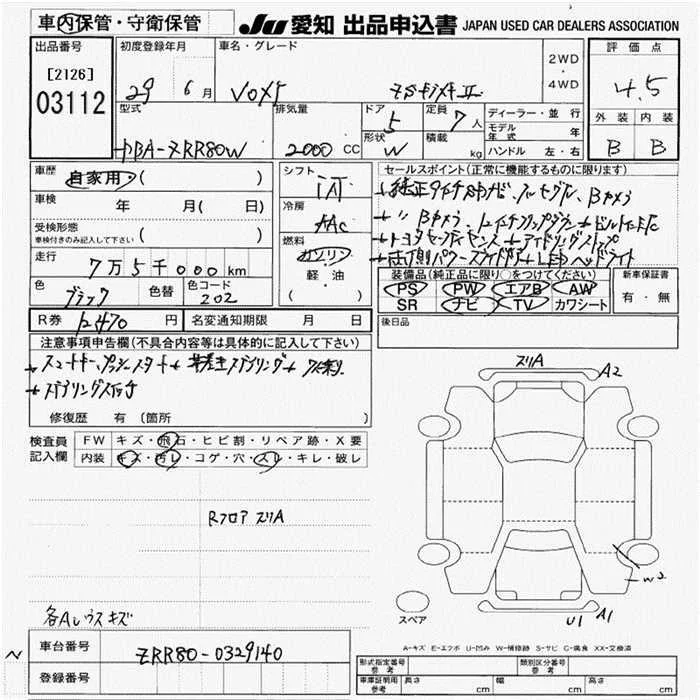 車内保管・守衛保管 JU 愛知 出品申込書 JAPAN USED CAR DEALERS ASSOCIATION
出品番号 初度登録年月 車名・グレード 2WD・4WD 評価点
[2126] 03112 29年 6月 VOXY ZSキラメキⅡ 4.5
型式 排気量 ドア 定員 ディーラー・並行 外装 内装
DBA-ZRR80W 2000 CC 5 7人 モデル年式 年 B B
形状 W 積載 kg ハンドル 左・右
車歴 自家用 ( ) シフト IAT セールスポイント(正常に機能するものに限ります)
車検 年 月( 日) 冷房 AAC 純正9インチSDナビ、フルセグTV、Bカメラ
受検形態 車検付きのみ記入して下さい ( ) Bカメラ、12インチフリップダウン ビルトインETC
走行 7万5千000km 燃料 ガソリン 軽油 ( ) トヨタセーフティセンス アイドリングストップ
両側パワースライドドア LEDヘッドライト
色 ブラック 色替 色コード 202 装備品(純正品に限り○をつけてください) 新車保証書
PS PW エアB AW 有・無
SR ナビ TV カワシート
R券 12470円 名変通知期限 月 日 後日品
注意事項申告欄(不具合内容等は具体的に記入して下さい)
スマートキー、プッシュスタート 革巻きステアリング
ステアリングスイッチ
修復歴 有 (箇所 )
スリA A2
検査員記入欄 FW キズ・飛石・ヒビ割・リペア跡・X要
内装 キズ・汚レ・コゲ・穴・スレ・キレ・破レ
Rフロア スリA
W2
各Aレ ウス キズ
スペア U1 A1
A-キズ E-エクボ U-凹み W-補修跡 S-サビ C-腐食 XX-交換済
N 車台番号 ZRR80-0329140
登録番号
型式指定番号 参考 類別区分番号 参考
車庫証明用 参考 長さ cm 幅 cm 高さ cm